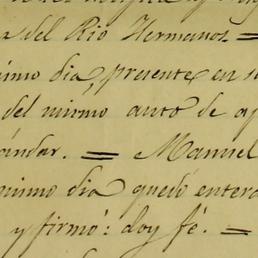 del Rio Hermanos. =
mismo dia, presente en su
del mismo auto de ap
andar. = Manuel
mismo dia quedó entera
y firmó: doy fé. =